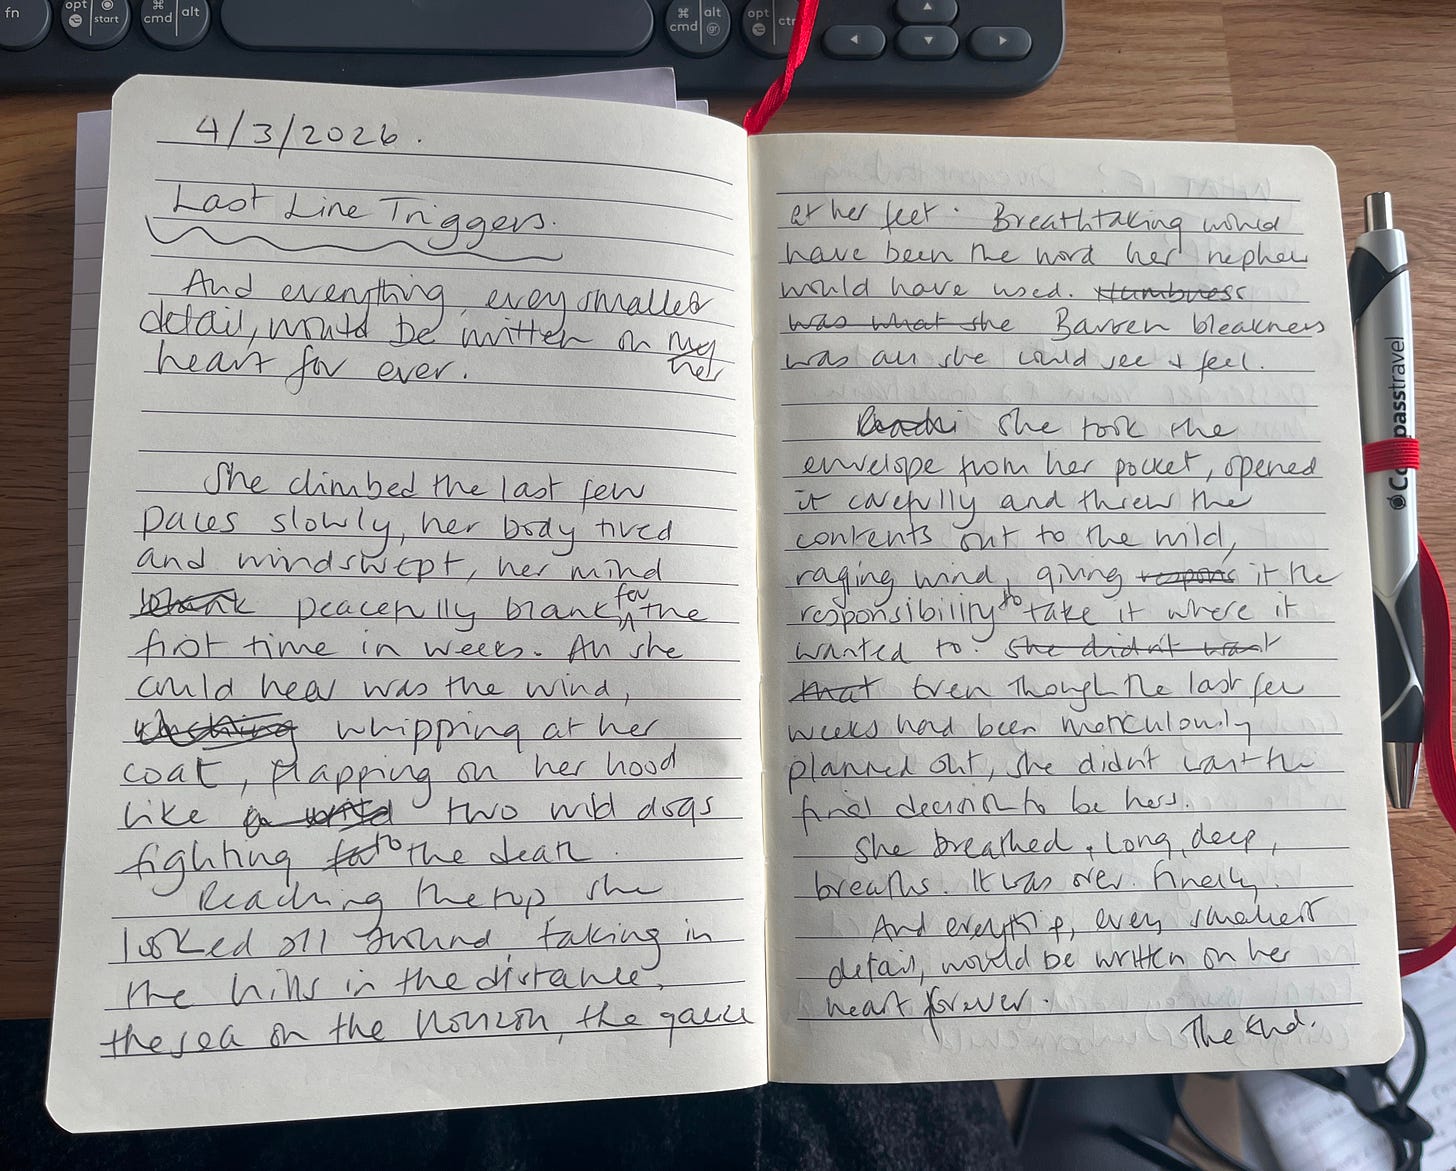 fn
opt
start
cmd
alt
cmd
alt
opt
4/3/2026.
Last Line Triggers.
And everything, every smallest
detail, would be written on my
her
heart for ever.
She climbed the last few
paces slowly, her body tired
and windswept, her mind
blank peacefully blank for the
first time in weeks. All she
could hear was the wind,
whipping at her
coat, flapping on her hood
like two wild dogs
fighting to the death.
Reaching the top she
looked all around taking in
the hills in the distance,
the sea on the horizon, the
at her feet. Breathtaking would
have been the word her nephew
would have used. Numbness
was what she Barren bleakness
was all she could see & feel.
She took the
envelope from her pocket, opened
it carefully and threw the
contents out to the wild,
raging wind, giving respons it the
responsibility to take it where it
wanted to. She didn't want
that Even though the last few
weeks had been meticulously
planned out, she didn't want the
final decision to be hers.
She breathed, long, deep,
breaths. It was over. Finally.
And everything, every smallest
detail, would be written on her
heart forever.
The End.
Compasstravel